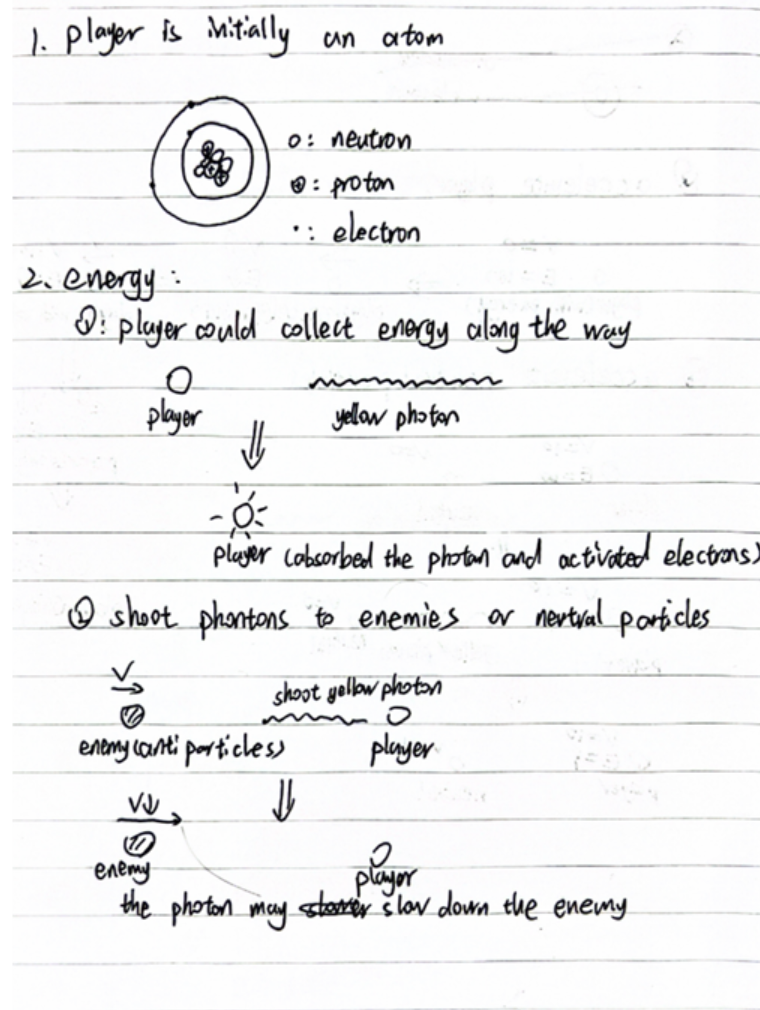 1. player is initially an atom
o: neutron
⊕: proton
·: electron
2. energy:
①: player could collect energy along the way
player
yellow photon
player (absorbed the photon and activated electrons)
② shoot phontons to enemies or nertral particles
V
shoot yellow photon
enemy(anti particles)
player
V↓
enemy
player
the photon may slow down the enemy